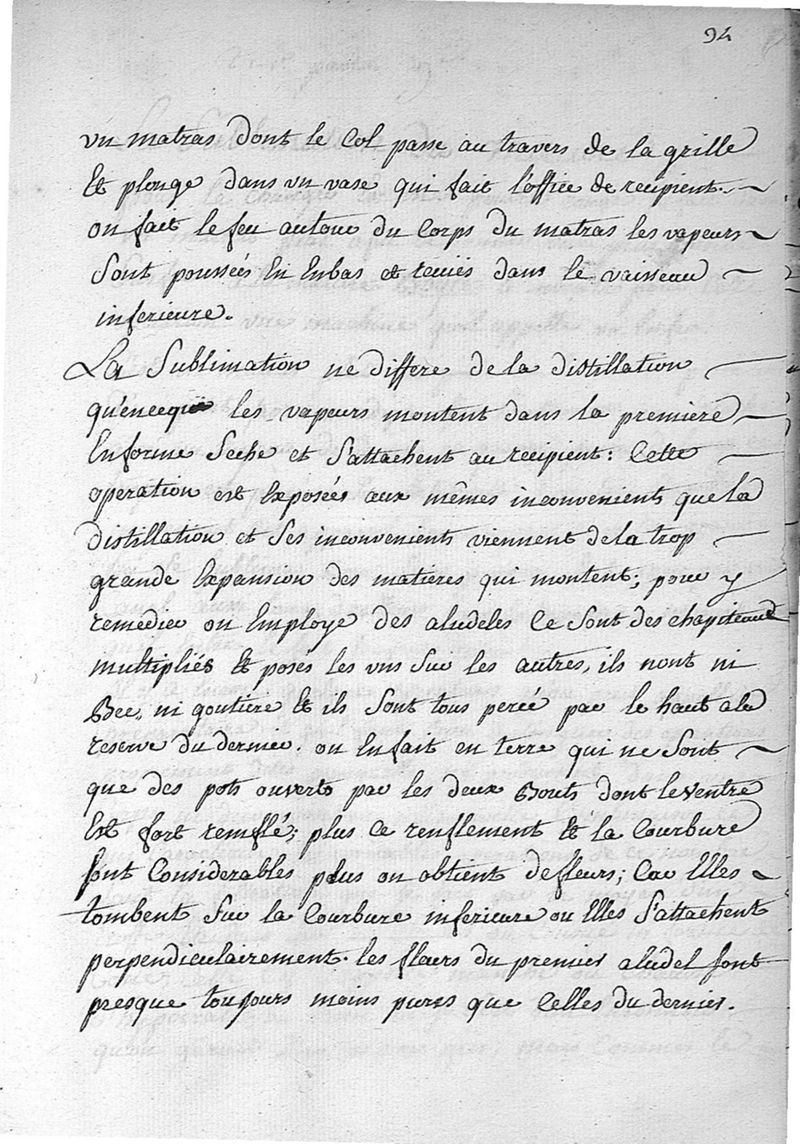 94
vn matras dont le Col passe au travers de la grille
Et plonge dans vn vase qui fait l'office de recipient.
on fait le feu autour du Corps du matras les vapeurs
Sont poussées En Enbas et recüés dans le vaisseau
inferieure.
La Sublimation ne differe de la distillation
qu'enceque les vapeurs montent dans la premiere
En forme Seche et S'attachent au recipient: Cette
operation est Exposées aux mêmes inconvenients que la
distillation et Ses inconvenients viennent de la trop
grande Expansion des matieres qui montent; pour y
remedier on Employe des aludeles Ce Sont des chapiteaux
multipliés Et posés les vns Sur les autres, ils nont ni
Bec, ni goutiere Et ils Sont tous percée par le haut ala
reserve du dernier. on En fait en terre qui ne Sont
que des pots ouverts par les deux Bouts dont le Ventre
Est fort remflé; plus Ce renflement Et la Courbure
Sont Considerables plus on obtient de fleurs; Car Elles
tombent Sur la Courbure inferieure ou Elles S'attachent
perpendiculairement. les fleurs du premier aludel Sont
presque toujours moins pures que Celles du dernier.